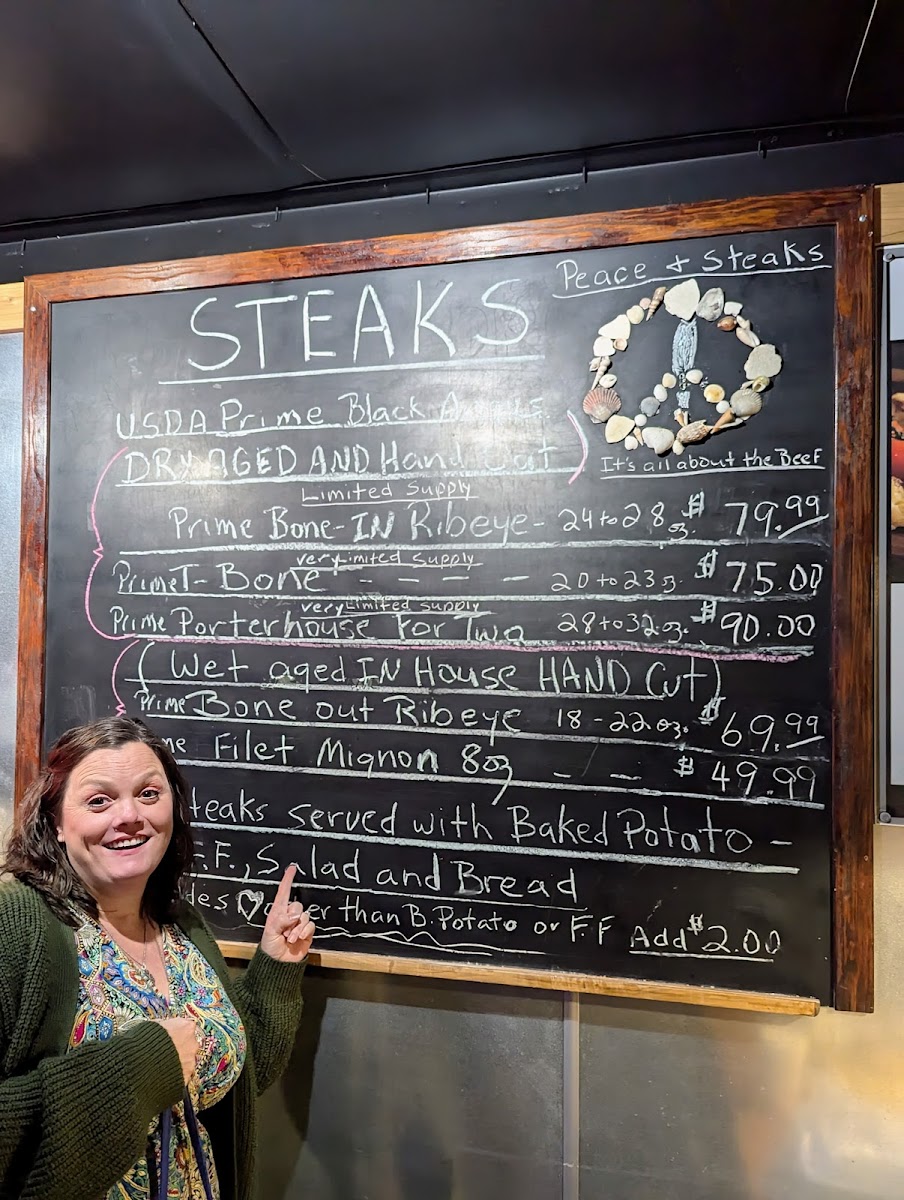 Peace + Steaks
STEAKS
It's all about the Beef
USDA Prime Black
DRY AGED AND Hand Cut
Limited Supply
Prime Bone-IN Ribeye- 24 to 28 oz. $ 79.99
very Limited Supply
Prime T-Bone - - - - 20 to 23 oz. $ 75.00
very Limited Supply
Prime Porterhouse For Two 28 to 32 oz. $ 90.00
(Wet aged IN House HAND Cut)
Prime Bone out Ribeye 18-22 oz. $ 69.99
Filet Mignon 8oz - - $ 49.99
Steaks served with Baked Potato -
F.F., Salad and Bread
other than B. Potato or F.F Add $2.00